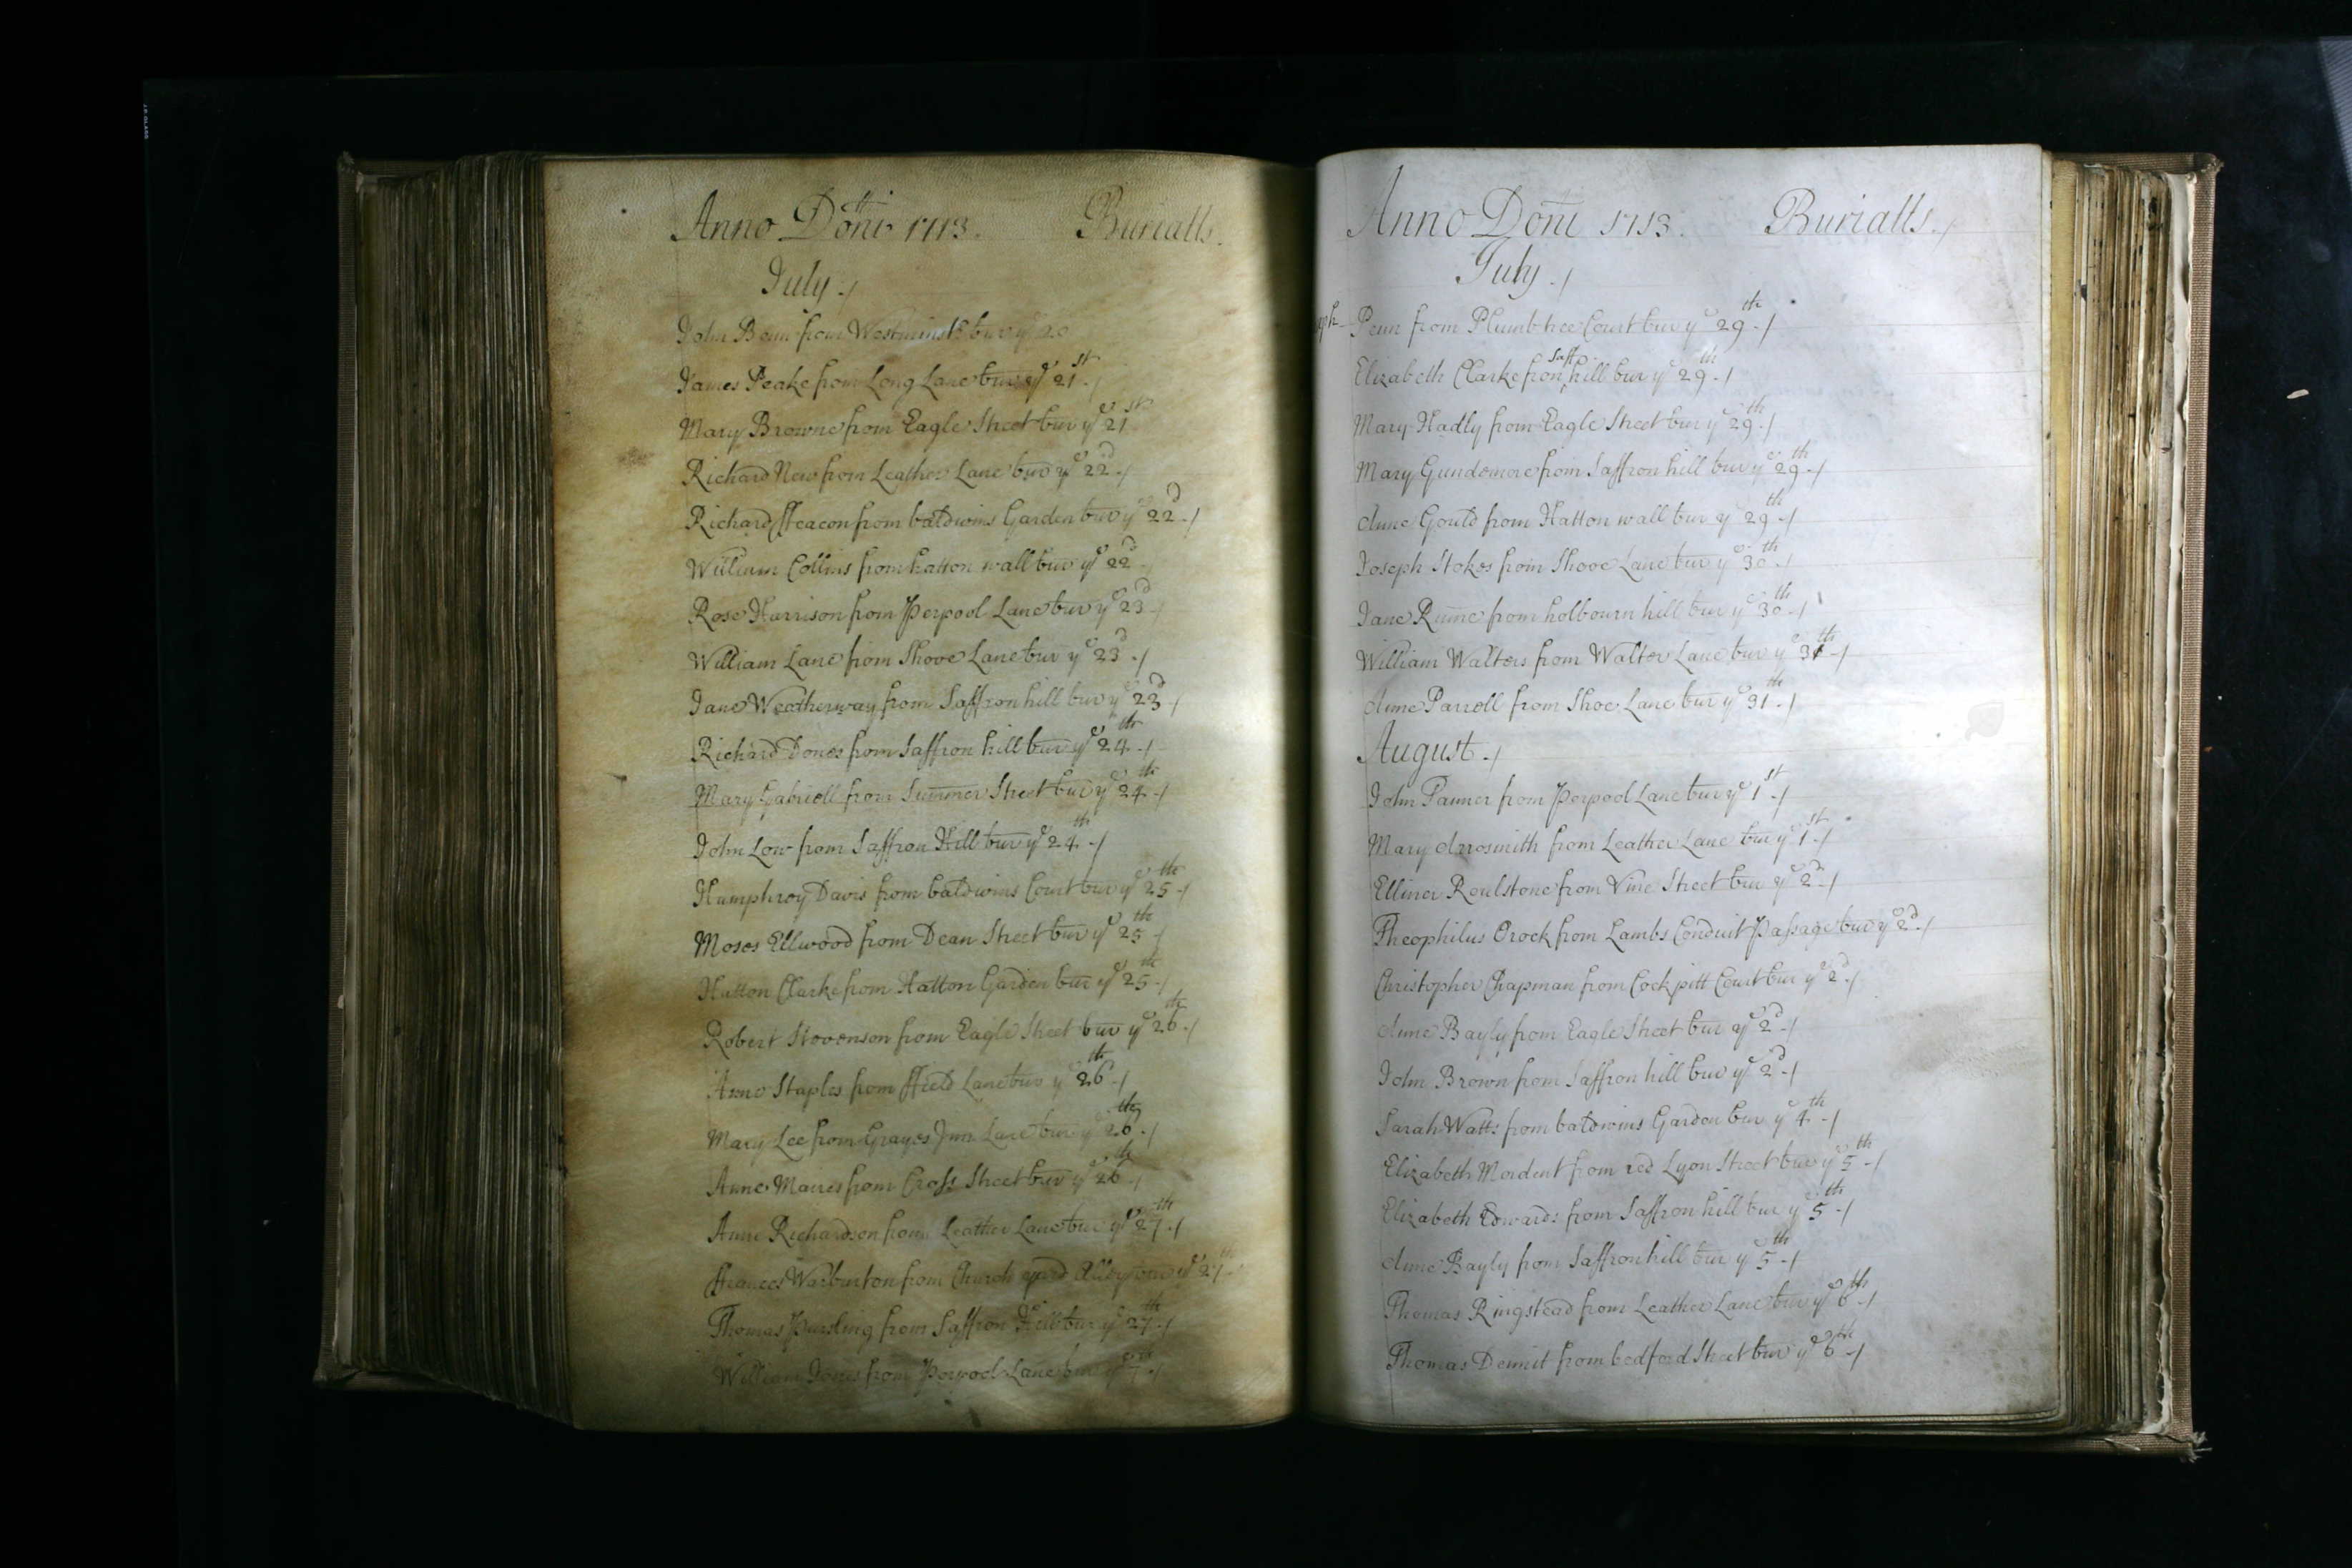 Anno Doni 1713. Burialls.
July ./
John from Westminstr bur ye 20
James Peake from Long Lane bur ye 21st ./
Mary Browne from Eagle Street bur ye 21st
Richard New from Leather Lane bur ye 22d ./
Richard ffeacon from baldwins Garden bur ye 22d ./
William Collins from hatton wall bur ye 22d ./
Rose Harrison from Perpool Lane bur ye 23d ./
William Lane from Shooe Lane bur ye 23d ./
Jane Weatherway from Saffron hill bur ye 23d ./
Richard Dones from Saffron hill bur ye 24th ./
Mary Gabriell from Summer Street bur ye 24th ./
John Low from Saffron Hill bur ye 24th ./
Humphrey Davis from baldwins Court bur ye 25th ./
Moses Ellwood from Dean Street bur ye 25th ./
Hatton Clarke from Hatton Garden bur ye 25th ./
Robert Stevenson from Eagle Street bur ye 26th ./
Anne Staples from ffield Lane bur ye 26th ./
Mary Lee from Grayes Inn Lane bur ye 26th ./
Anne Maires from Cross Street bur ye 26th ./
Anne Richardson from Leather Lane bur ye 27th ./
ffrances Warburton from Church yard Alley bur ye 27th
Thomas Pursling from Saffron Hill bur ye 27th ./
William Jones from Perpool Lane bur ye ./
Anno Dom 1713. Burialls ./
July ./
Penn from Plumbtree Court bur ye 29th ./
Elizabeth Clarke from Saffo hill bur ye 29th ./
Mary Hadly from Eagle Street bur ye 29th ./
Mary Gundemore from Saffron hill bur ye 29th ./
Anne Gould from Hatton wall bur ye 29th ./
Joseph Stokes from Shooe Lane bur ye 30th ./
Jane Rume from holbourn hill bur ye 30th ./
William Walters from Walter Lane bur ye 31th ./
Anne Parrell from Shoe Lane bur ye 31th ./
August ./
John Panner from Perpool Lane bur ye 1st ./
Mary Arrosmith from Leather Lane bur ye 1st ./
Elliner Roulstone from Vine Street bur ye 2d ./
Theophilus Orock from Lambs Conduit Passage bur ye 2d ./
Christopher Chapman from Cockpitt Court bur ye 2d ./
Anne Bayly from Eagle Street bur ye 2d ./
John Brown from Saffron hill bur ye 2d ./
Sarah Watts from baldwins Garden bur ye 4th ./
Elizabeth Mordent from red Lyon Street bur ye 5th ./
Elizabeth Edwards from Saffron hill bur ye 5th ./
Anne Bayly from Saffron hill bur ye 5th ./
Thomas Ringstead from Leather Lane bur ye 6th ./
Thomas Dennit from bedford Street bur ye 6th ./